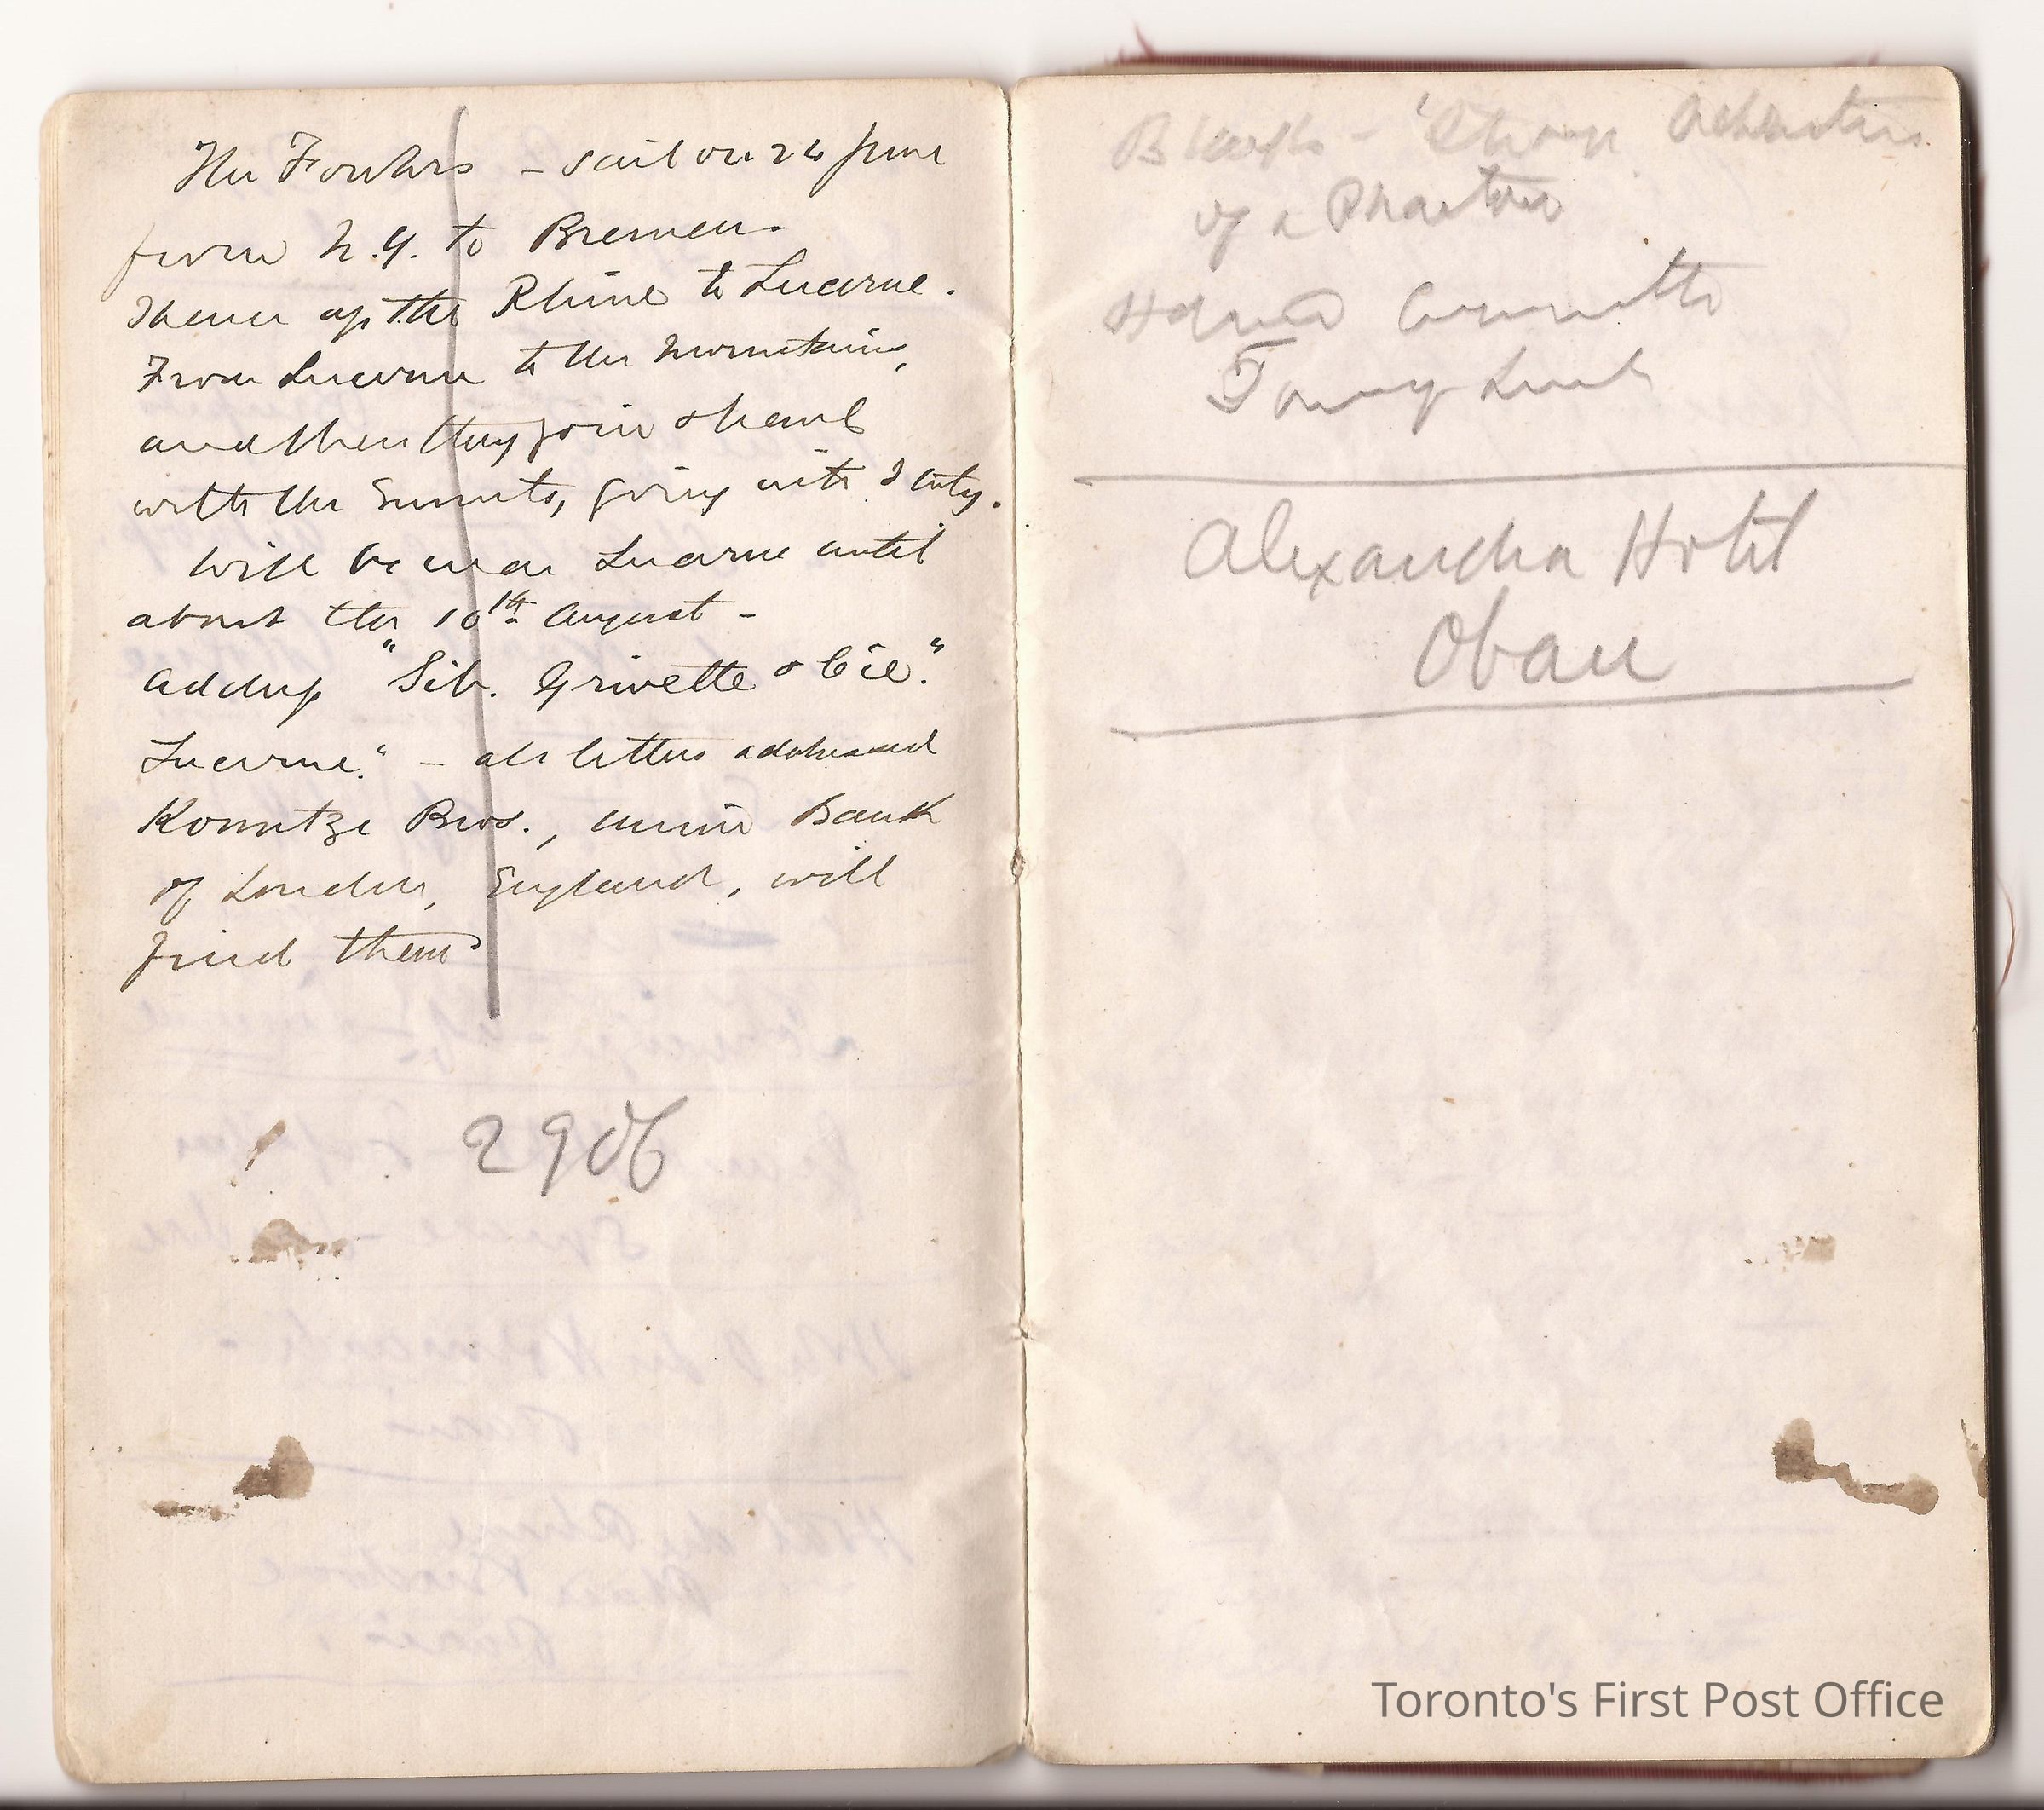 The Fowlers - sail on 26 June
from N.Y. to Bremen.
Thence up the Rhine to Lucerne.
From Lucerne to the mountains,
and then they join hands
with the Emmets, going into Italy.
Will be near Lucerne until
about the 10th August -
Address "Sib. Grivette & Cie."
Lucerne." - all letters addressed
Kountze Bros., Union Bank
of London, England, will
find them
2906
Black's - "Strange Adventures
of a Phaeton
Alexandra Hotel
Oban
Toronto's First Post Office